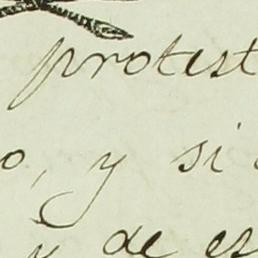 protest
o, y si
y de es